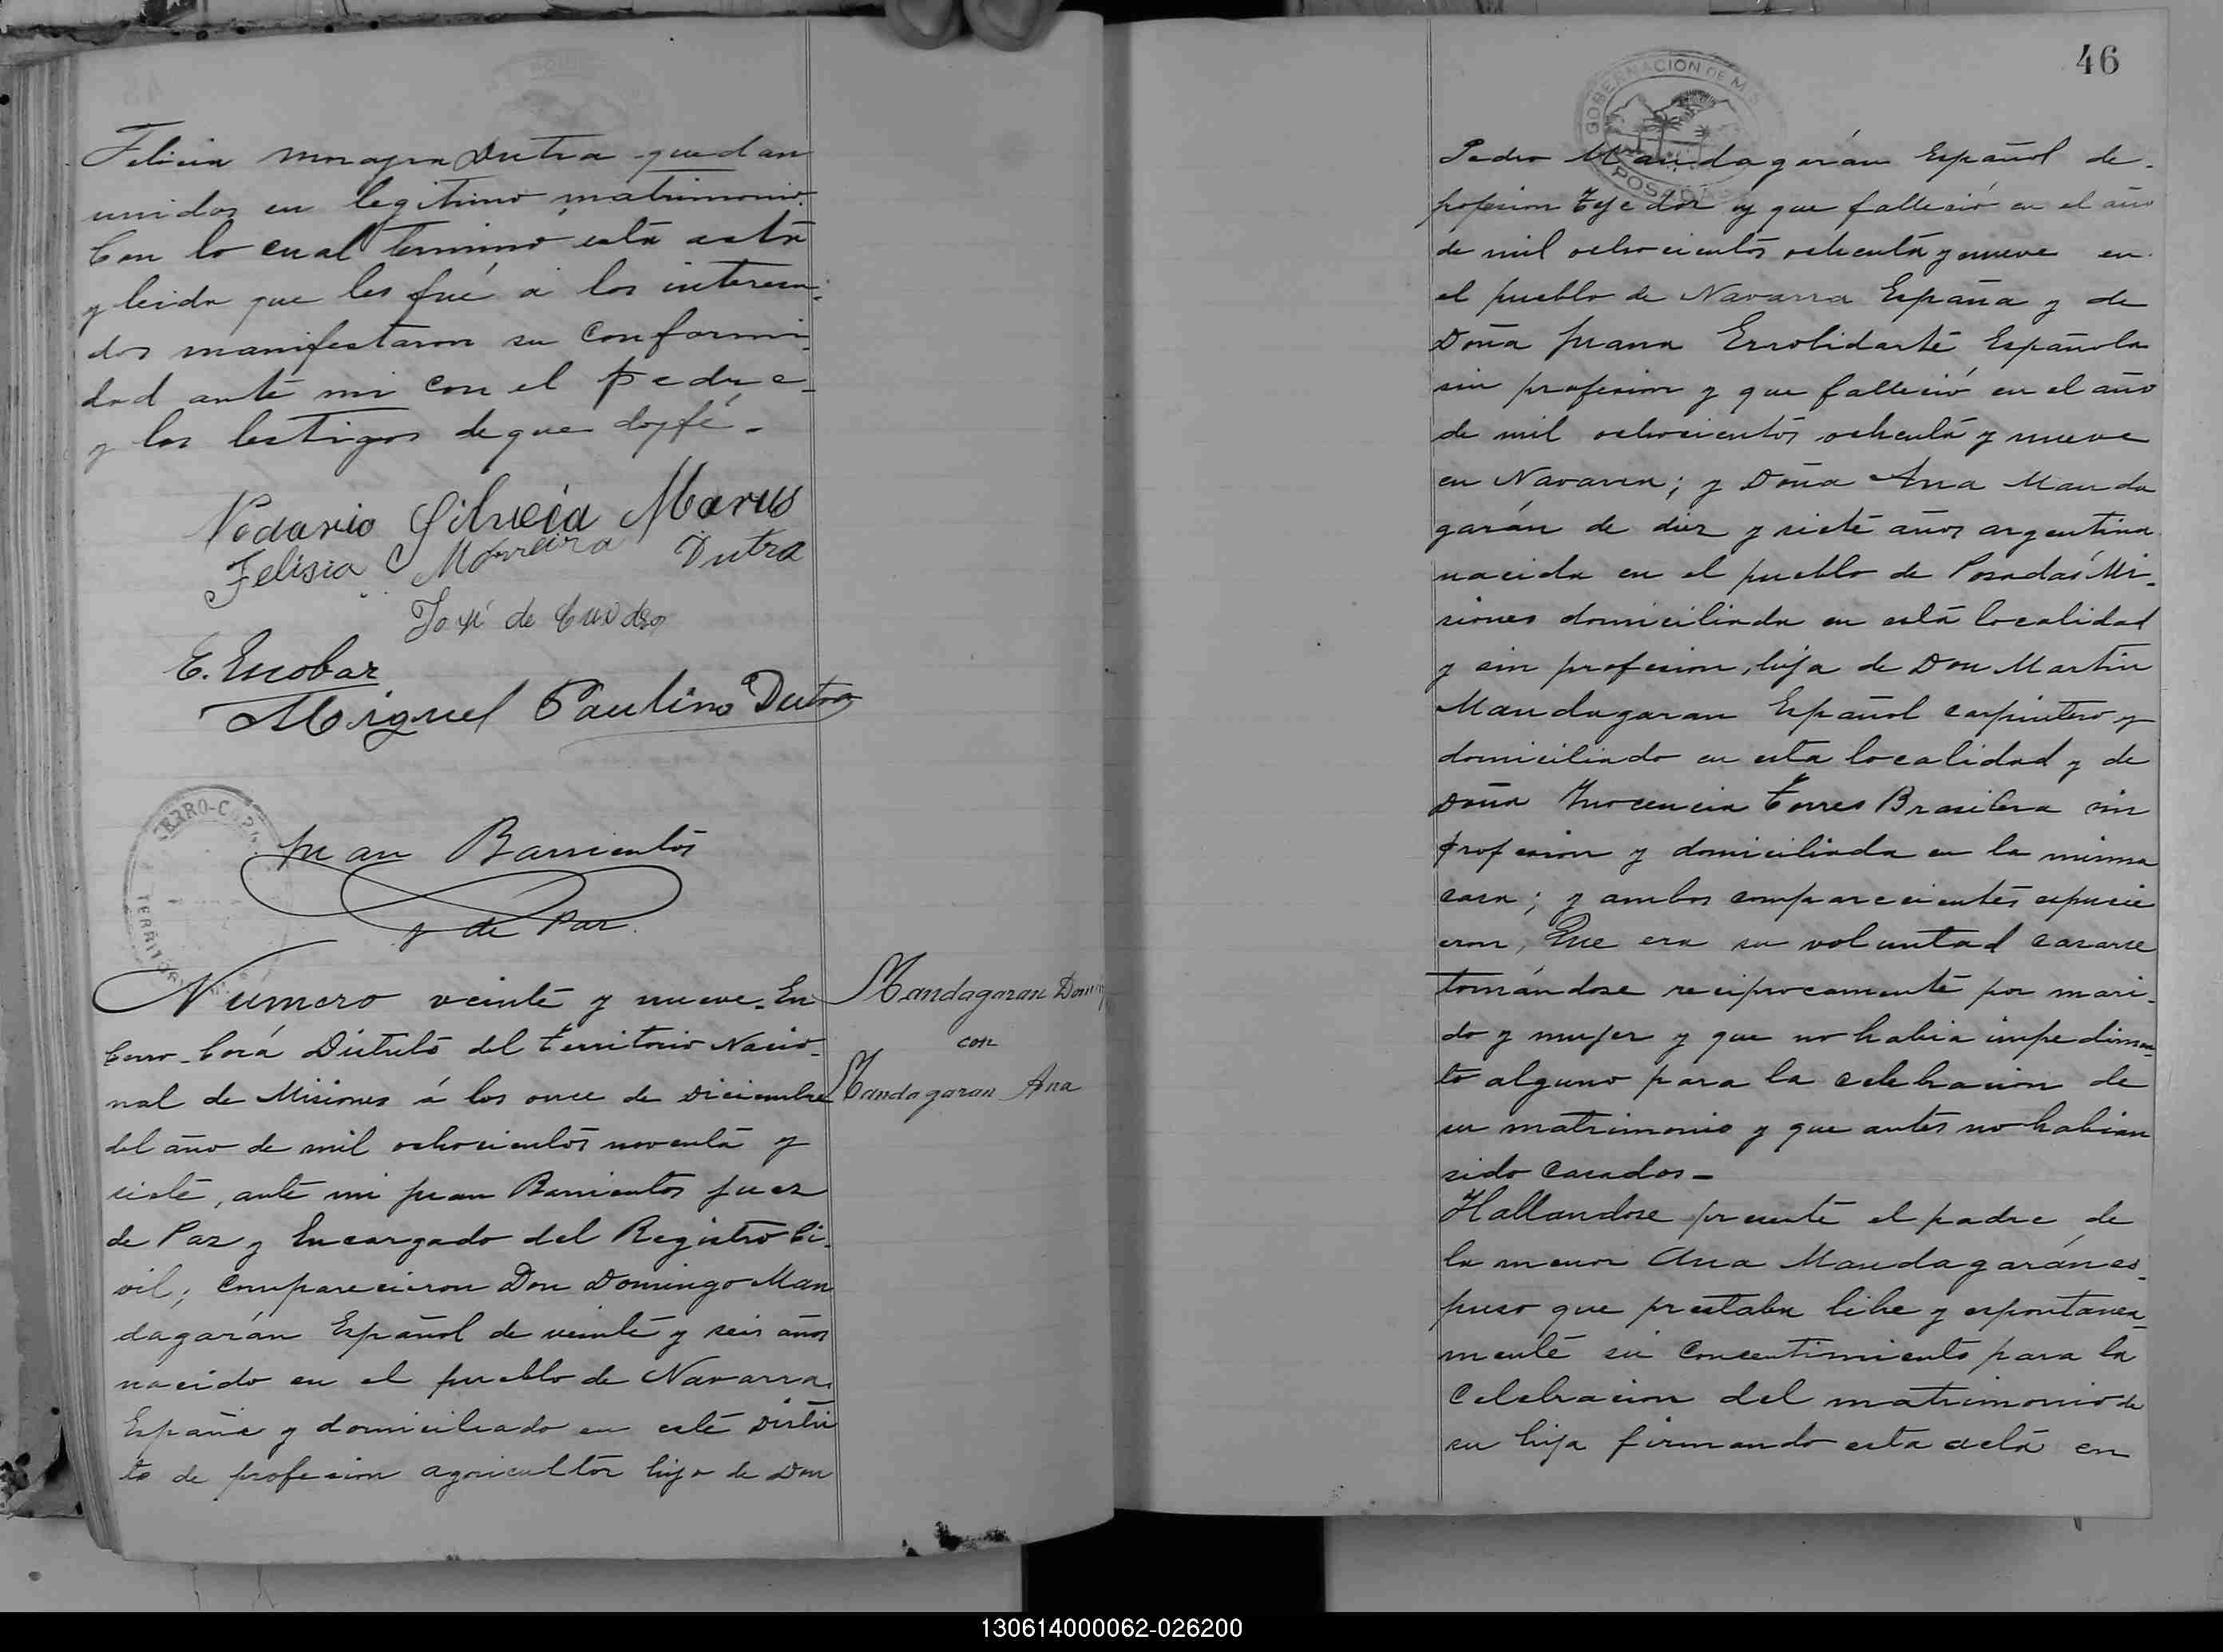 Felicia Morayra Dutra quedan
unidos en legitimo matrimonio.
Con lo cual terminó esta acta
y leida que les fué á los interesa-
dos manifestaron su conformi-
dad ante mi con el padre
y los testigos de que doy fé.-
Nodario Silveia Marus
Felisia Moreira Dutra
José de
E. Escobar
Miguel Paulino Dutra
CERRO-CORA
TERRITOR
Juan Barrientos
J de Paz
Número veinte y nueve. En
Cerro-Corá Distrito del Territorio Nacio-
nal de Misiones á los once de Diciembre
del año de mil ochocientos noventa y
siete, ante mi Juan Barrientos Juez
de Paz y Encargado del Registro Ci-
vil; comparecieron Don Domingo Man
dagarán Español de veinte y seis años
nacido en el pueblo de Navarra
España y domiciliado en este Distri
to de profesion agricultor hijo de Don
Mandagaran Domin
con
Mandagaran Ana
46
GOBERNACION DE MIS
POSADAS
Pedro Mandagarán Español de
profesion Tejedor y que falleció en el año
de mil ochocientos ochenta y nueve en
el pueblo de Navarra España y de
Doña Juana Errolidarte Española
sin profesion y que falleció en el año
de mil ochocientos ochenta y nueve
en Navarra; y Doña Ana Manda
garán de diez y siete años argentina
nacida en el pueblo de Posadas Mi-
siones domiciliada en esta localidad
y sin profesion, hija de Don Martin
Mandagaran Español carpintero y
domiciliado en esta localidad y de
Doña Inocencia Torres Brasilera sin
profesion y domiciliada en la misma
casa; y ambos comparecientes espusie
eron, Que era su voluntad casarse
tomándose reciprocamente por mari-
do y mujer y que no habia impedimen-
to alguno para la celebracion de
su matrimonio y que antes no habian
sido casados-
Hallandose presente el padre de
la menor Ana Mandagarán es-
puso que prestaba libre y espontanea-
mente su concentimiento para la
celebracion del matrimonio de
su hija firmando esta acta en
130614000062-026200